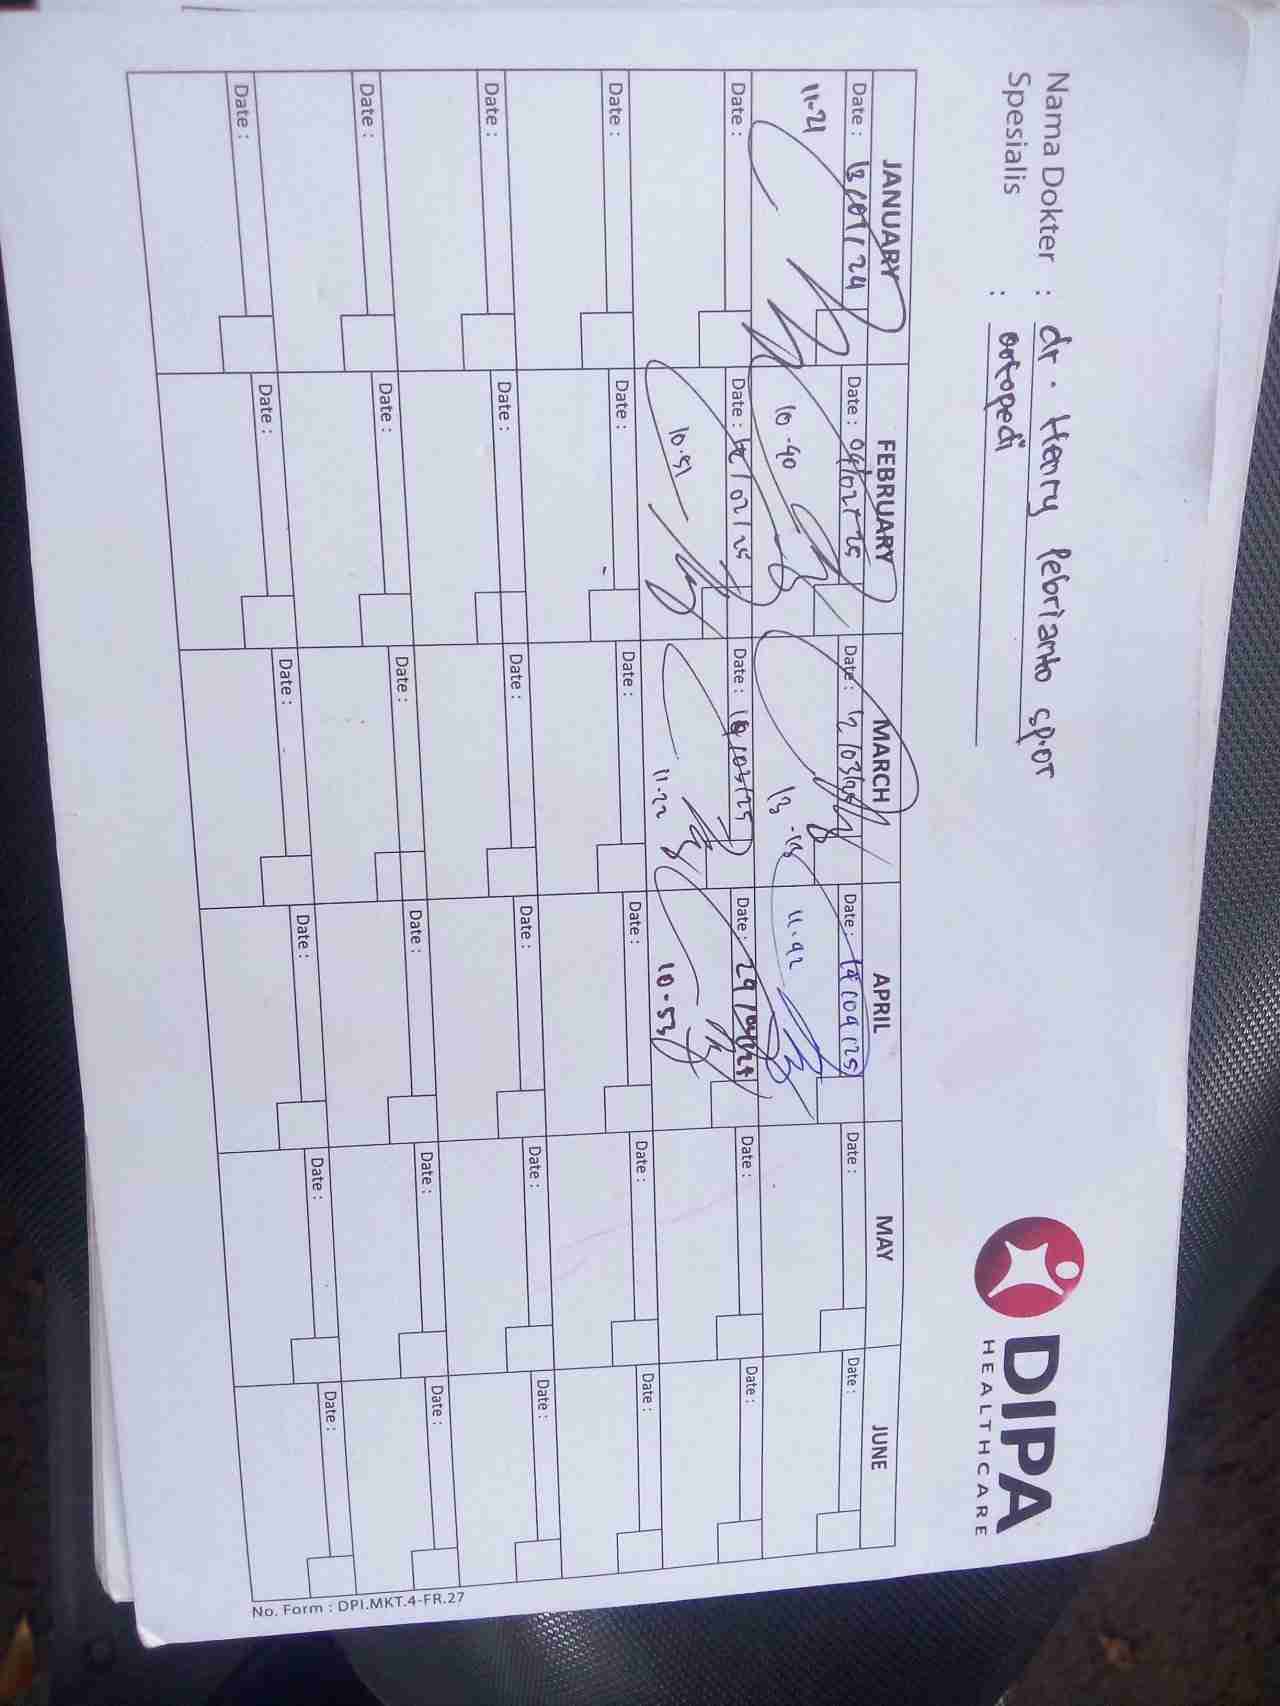 Nama Dokter : dr. Henry Pebrianto SP.OT
Spesialis : ortopedi
DIPA
HEALTHCARE
JANUARY FEBRUARY MARCH APRIL MAY JUNE
Date : 13/01/24 Date : 04/02/25 Date : 12/03/25 Date : 14/04/25 Date : Date :
11-21 10-40 13 11.42
Date : Date : /02/25 Date : /03/25 Date : 29/ Date : Date :
10.51 11-22 10-53
Date : Date : Date : Date : Date : Date :
Date : Date : Date : Date : Date : Date :
Date : Date : Date : Date : Date : Date :
Date : Date : Date : Date : Date : Date :
No. Form : DPI.MKT.4-FR.27